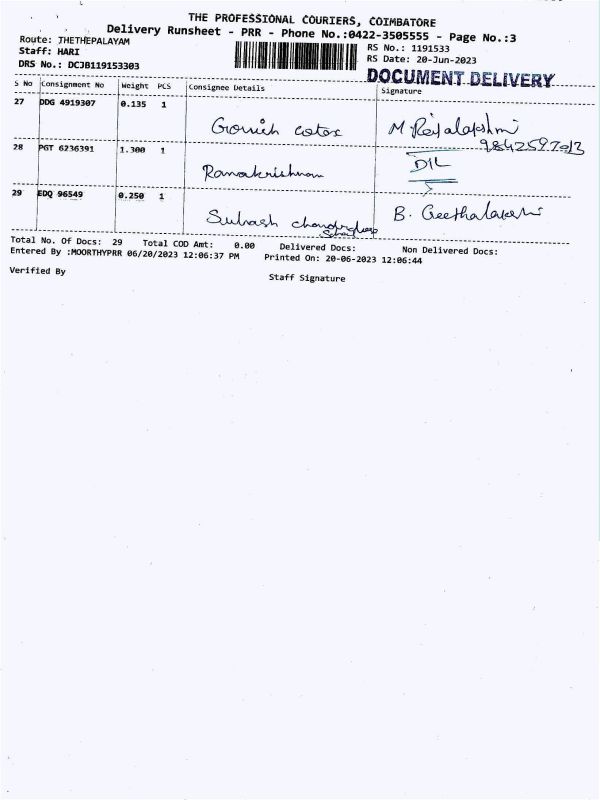 THE PROFESSIONAL COURIERS, COIMBATORE
Delivery Runsheet - PRR - Phone No.:0422-3505555 - Page No.:3
Route: THETHEPALAYAM
RS No.: 1191533
Staff: HARI
RS Date: 20-Jun-2023
DRS No.: DCJB119153303
DOCUMENT DELIVERY
S No Consignment No Weight PCS Consignee Details Signature
27 DDG 4919307 0.135 1
M. Rajalakshmi
9842597013
28 PGT 6236391 1.300 1
Ramakrishnan
D/L
29 EDQ 96549 0.250 1
Subash
B. Geethalakshmi
Total No. Of Docs: 29 Total COD Amt: 0.00 Delivered Docs: Non Delivered Docs:
Entered By :MOORTHYPRR 06/20/2023 12:06:37 PM Printed On: 20-06-2023 12:06:44
Verified By
Staff Signature